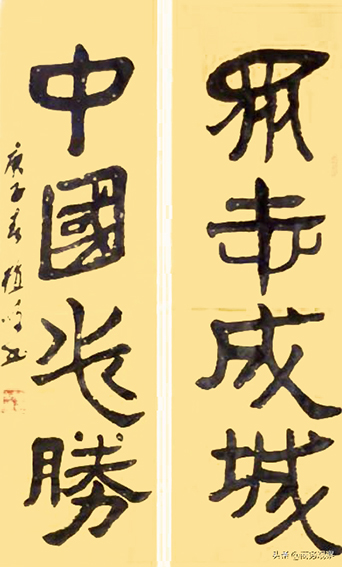 眾志成城
中國必勝
庚子春
头条